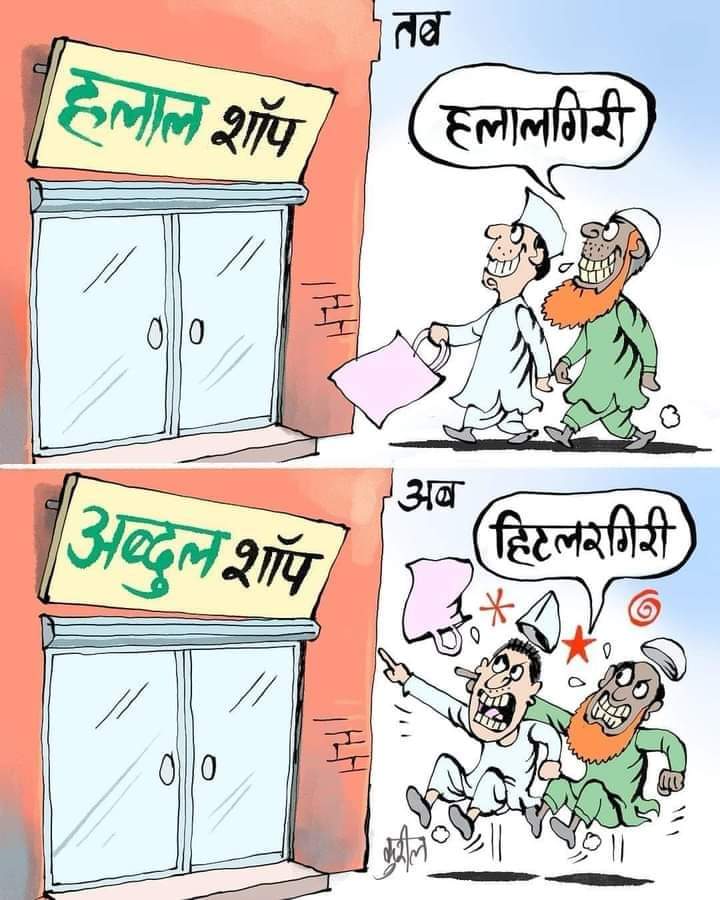 तब
हलाल शॉप
हलालगिरी
अब
अब्दुल शॉप
हिटलरगिरी